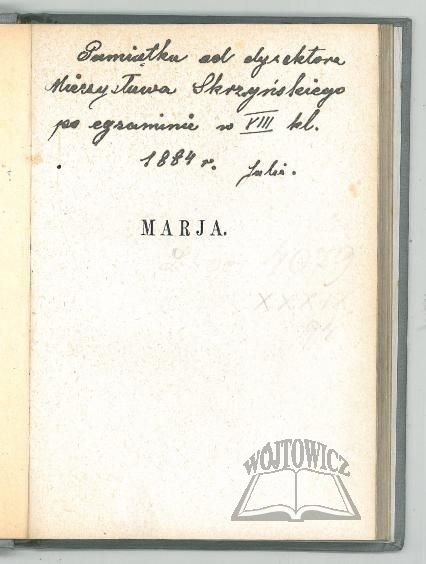 Pamiątka od dyrektora
Mieczysława Skrzyńskiego
po egzaminie w VIII kl.
1884 r. Julii.
MARJA.
1029
XXXIX
94
WÓJTOWICZ